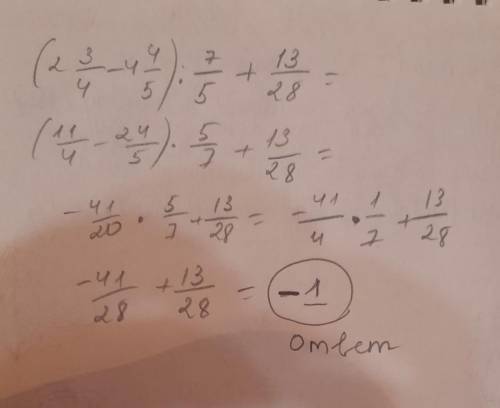 (2 3/4 - 4 4/5) : 7/5 + 13/28 =
(11/4 - 24/5) · 5/7 + 13/28 =
-41/20 · 5/7 + 13/28 = -41/4 · 1/7 + 13/28
-41/28 + 13/28 = -1
ответ